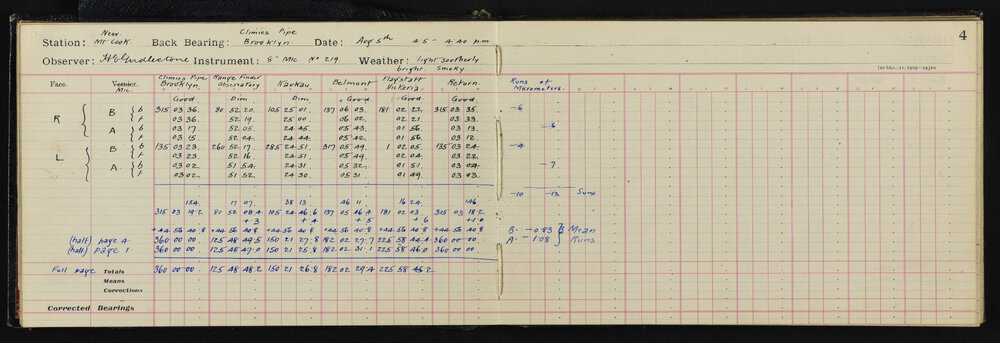 New Climies Pipe
Station: Mt Cook Back Bearing: Brooklyn Date: Aug 5th 4.5 - 4.40 p.m. 4
Observer: H E Girdlestone Instrument: 8" Mic No 219. Weather: light southerly
bright. Smoky
Face. Vernier. Mic. Climies Pipe Brooklyn Range Finder Observatory Kaukau Belmont Flagstaff Victoria Return. Runs of Micrometers.
Good. Dim Dim. Good. Good. Good.
R B b 315 03 36. 80 52 20. 105 25 01. 137 06 03. 181 02 22. 315 03 35. -6
f 03 36. 52 19. 25 00. 06 02. 02 21. 03 33.
A b 03 17. 52 05. 24 45. 05 43. 01 56. 03 13. -6.
f 03 15. 52 04. 24 44. 05 42. 01 56. 03 12.
L B b 135 03 23. 260 52 17. 285 24 51. 317 05 49. 1 02 05. 135 03 24. -4
f 03 23. 52 16 24 51. 05 49. 02 04. 03 22.
A b 03 02. 51 54. 24 31. 05 32. 01 51. 03 04. -7.
f 03 02. 51 52. 24 30. 05 31. 01 49. 03 03.
-10 -13 Sums
154. 17 07. 38 13. 46 11. 16 24. 146.
315 03 19.2 80 52 08.4 105 24 46.6 137 05 46.4 181 02 03. 315 03 18.2
+.3 +.4 +.5 +.6 +1.0
+44 56 40.8 +44 56 40.8 +44 56 40.8 +44 56 40.8 +44 56 40.8 +44 56 40.8 B - -0.83 Mean
(half) page 4 360 00 00. 125 48 49.5 150 21 27.8 182 02 27.7 225 58 44.4 360 00 00. A - -1.08 Runs
(half) page 1 360 00 00. 125 48 47.0 150 21 25.8 182 02 31.1 225 58 46.0 360 00 00.
Full page Totals 360 00 00. 125 48 48.2 150 21 26.8 182 02 29.4 225 58 45.2
Means
Corrections
Corrected Bearings